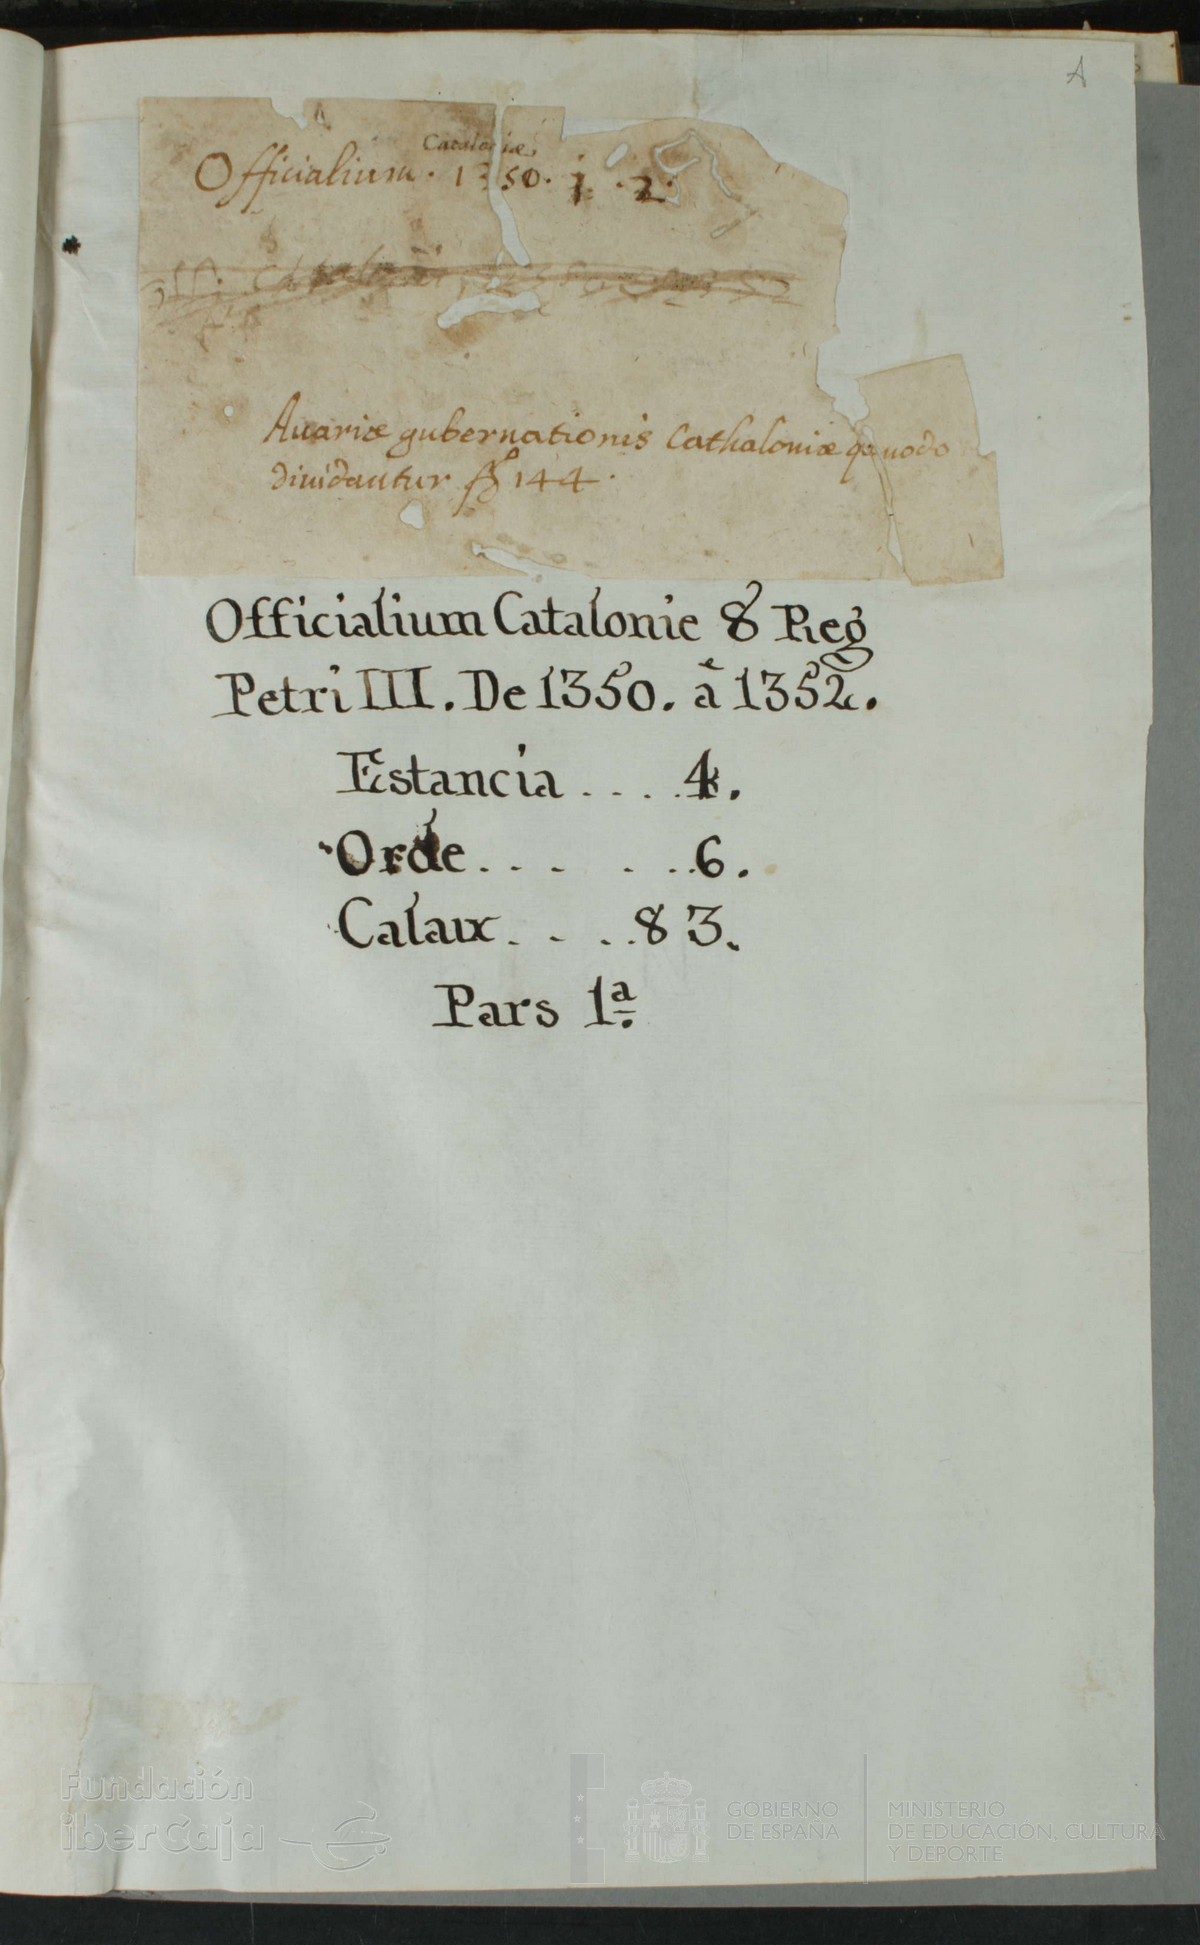 A
Cataloniæ
Officialium. 1350. 1. 2.
Avariæ gubernationis Cathaloniæ quomodo
dividantur fo 144.
Officialium Catalonie 8 Reg
Petri III. De 1350. à 1352.
Estancia .... 4.
Orde...... 6.
Calaix.....83.
Pars 1ª
Fundación
iberCaja
GOBIERNO
DE ESPAÑA
MINISTERIO
DE EDUCACIÓN, CULTURA
Y DEPORTE